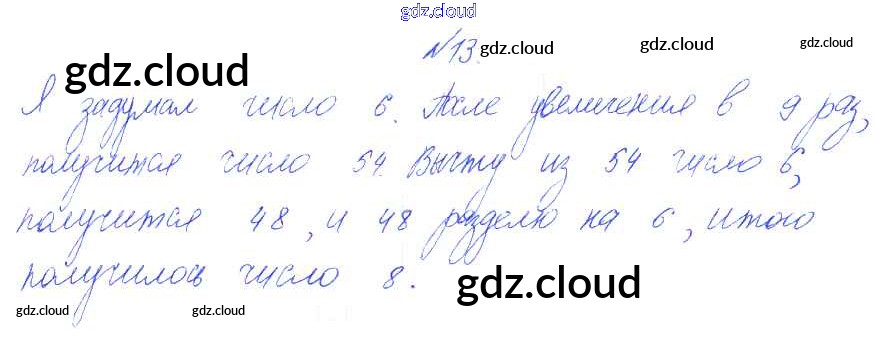 gdz.cloud
№13. gdz.cloud gdz.cloud gdz.cloud
gdz.cloud
Я задумал число 6. После увеличения в 9 раз,
получится число 54. Вычту из 54 число 6,
получится 48, и 48 разделю на 6, итого
получилось число 8.
gdz.cloud
gdz.cloud gdz.cloud